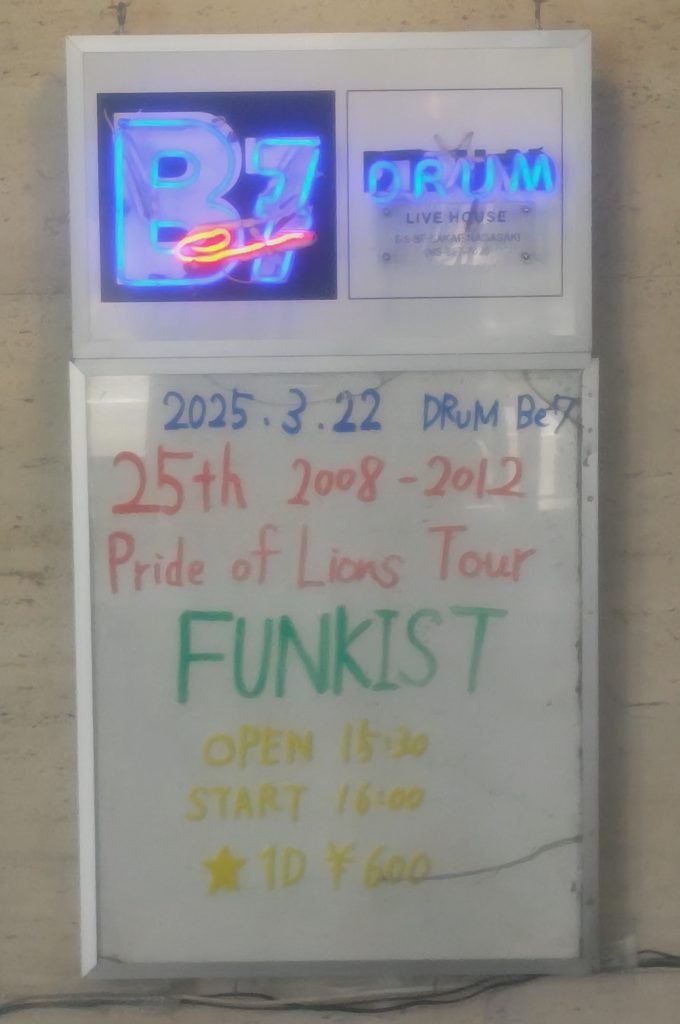 Be7
DRUM
LIVE HOUSE
2025.3.22 DRUM Be7
25th 2008-2012
Pride of Lions Tour
FUNKIST
OPEN 15:30
START 16:00
★1D ¥600